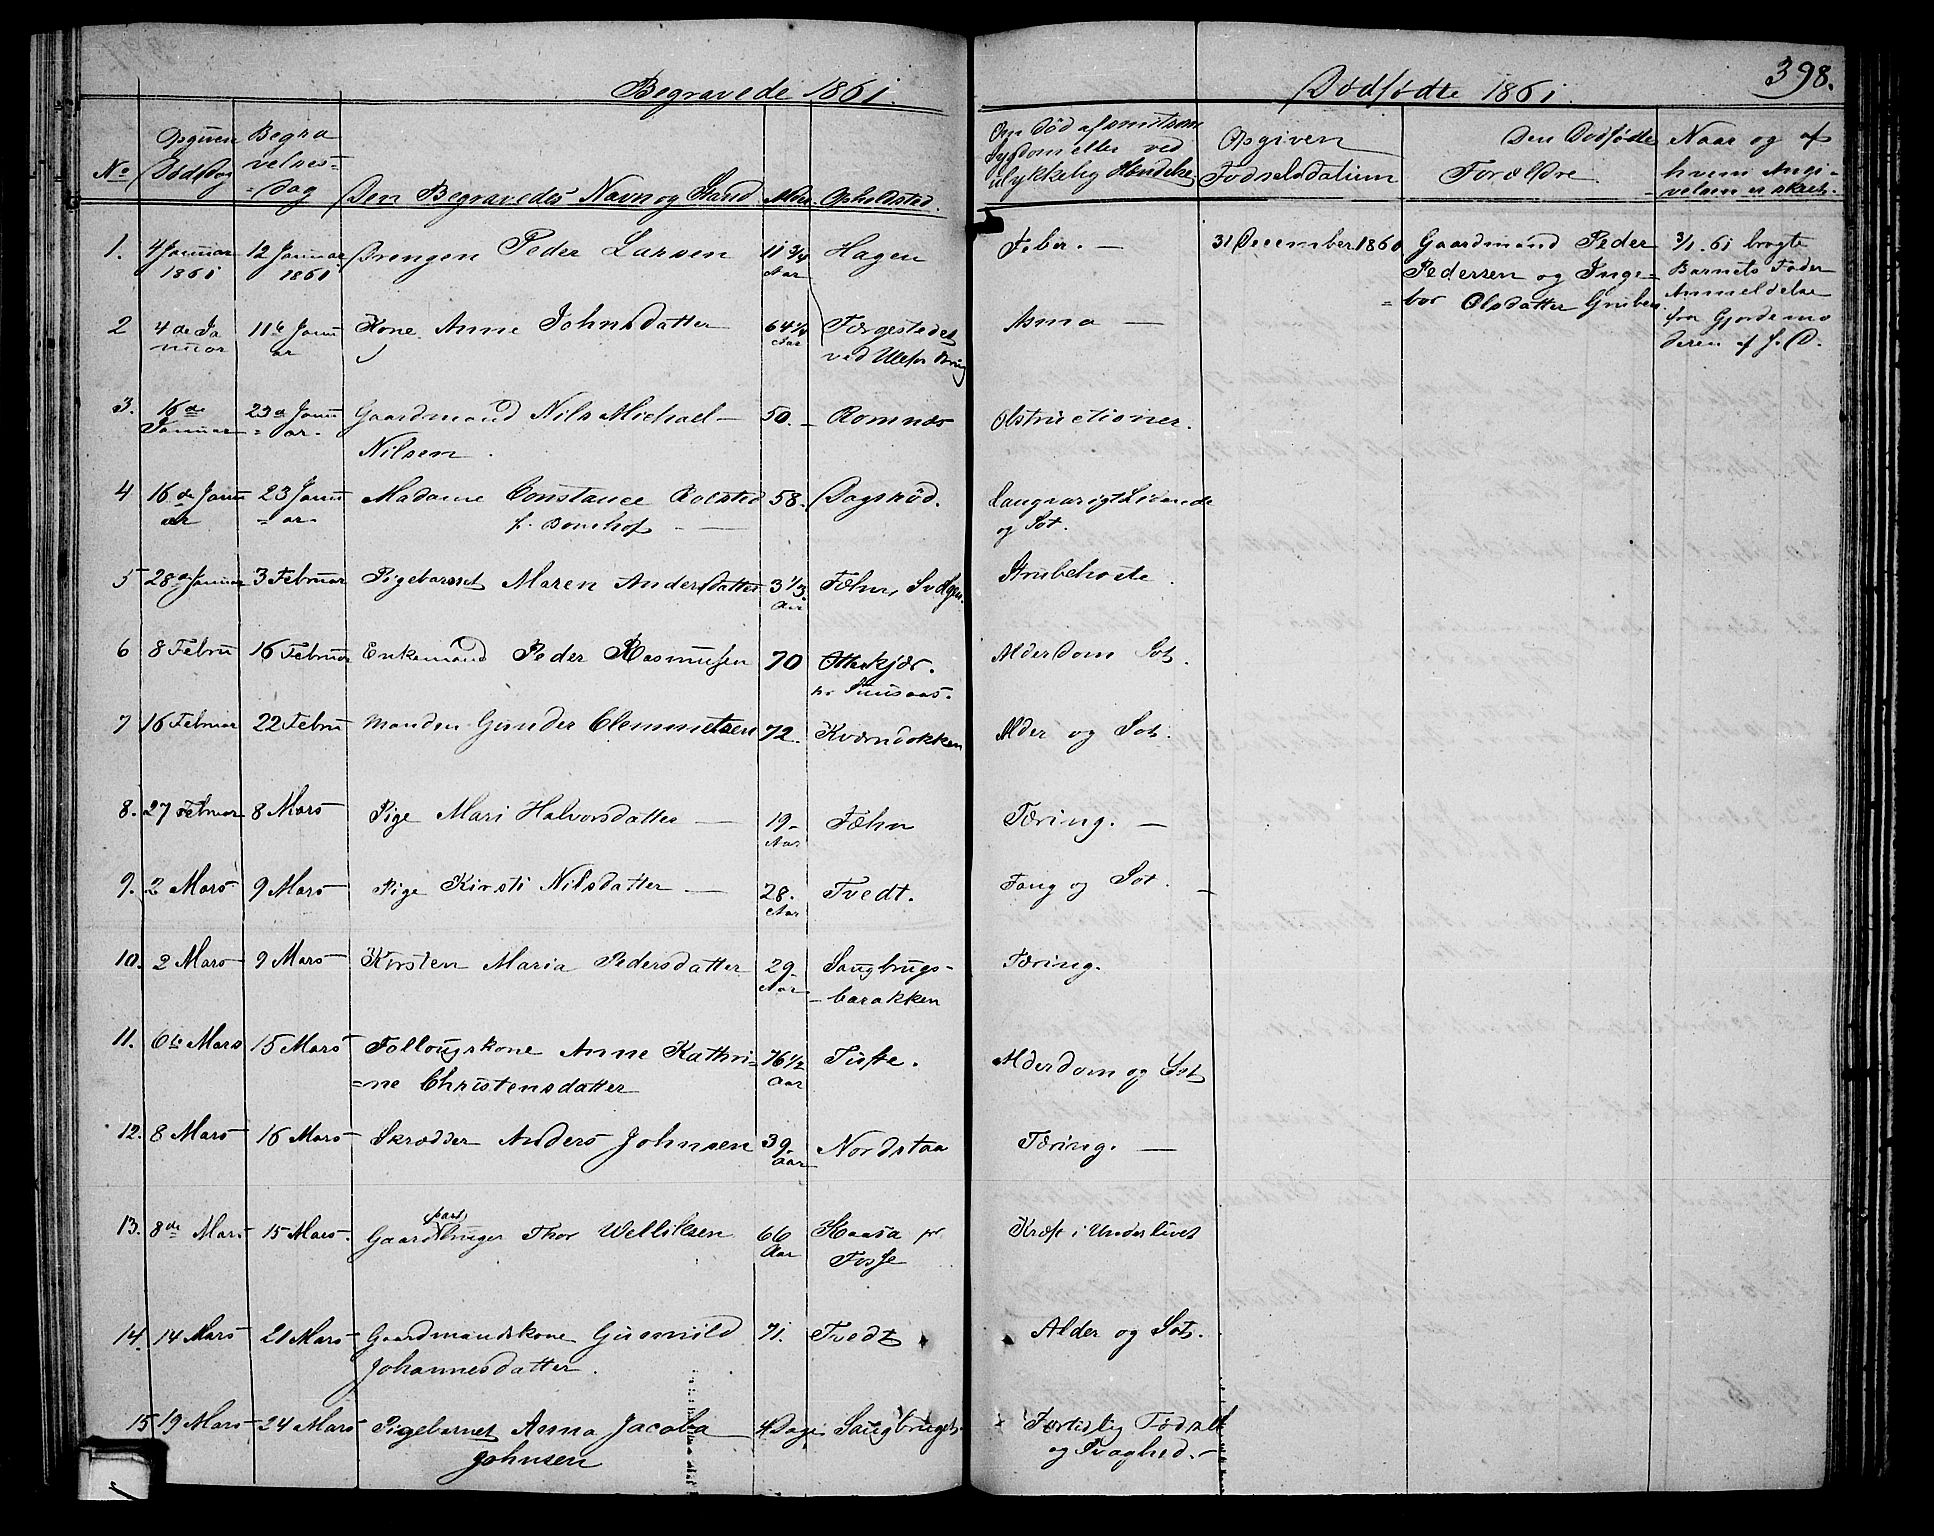 398.
Begravede 1861.
Dødfødte 1861.
No
Opgiven
Dødsdag
Begra
velses=
=Dag
Den Begravedes Navn og Stand
Alder
Opholdsted.
Om Død af smitsom
Sygdom eller ved
ulykkelig Hændelse
Opgiven
Fødselsdatum
Den Dødfødtes
Forældre.
Naar og af
hvem Angi-
velsen er skeet.
1. 4 Januar 12 Januar Drengen Peder Larsen 11 3/4 Hagen Feber. — 31 December 1860 Gaardmand Peder 3/1. 61 bragte
1861 1861 Aar Pedersen og Inge= Barnets Fader
=bor Olsdatter Gruben Anmeldelse
fra Gjordemo
deren af J. D.
2 4de Ja 11te Janu Kone Anne Johnsdatter 64 1/2 Færgestedet Asma —
nuar ar Aar ved Ulefos Brug
3. 16de 23d Janu Gaardmand Nils Michael— 50. Romnæs Obstructioner.
Januar =ar. Nilsen.
4 16de Janu 23 Janu Madame Constance Rolsted 58. Dagsrød. Langvarigt Livonde
ar =ar. f. Bonehof — og Sot.
5 28de Januar 3 Februar Pigebarnet Maren Andersdatter 3 1/3 Fæhn, Strubehoste.
Aar
6 8 Febru 16 Februar Enkemand Peder Rasmussen 70 Otterkjær. Alderdom Sot.
pr
7 16 Februar 22 Febru Manden Gunder Clemmetsen 72. Kværndokken Alder og Sot.
8. 27 Februar 8 Mars Pige Mari Halvorsdatter — 19- Fæhn Tæring. —
Aar
9. 2 Mars 9 Mars Pige Kirsti Nilsdatter — 28. Tvedt. Tang og Sot. —
Aar
10. 2 Mars 9 Mars Kirsten Maria Pedersdatter 29. Saugbrugs- Tæring.
Aar -barakken
11. 6te Mars 15 Mars Follougskone Anne Kathri- 76 1/2 Tufte. Alderdom og Sot
=ne Christensdatter Aar
12. 8 Mars 16 Mars Skrædder Anders Johnsen 39. Nordstaa Tæring. —
Aar
13. 8de Mars 15 Mars. Gaardpartbruger Thor Wetliksen 66 Haasa pr Kræft i Underlivet
Aar Fosse
14. 14 Mars 21 Mars Gaardmandskone Gunnild 71. Tvedt Alder og Sot.
Johannesdatter.
15 19 Mars 24 Mars Pigebarnet Anna Jacoba 4 Dage Saugbruget Færtidlig Fødsel
Johnsen og Svaghed. —